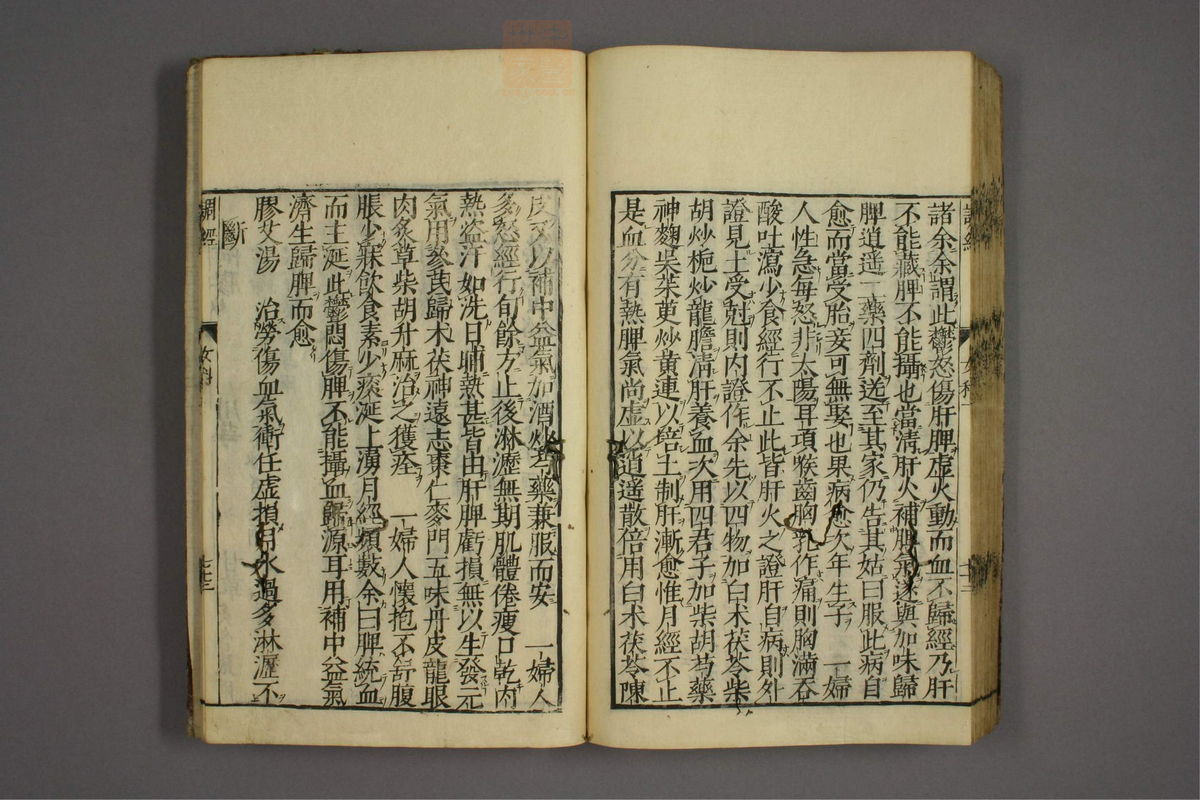 諸余余謂此鬱怒傷肝脾虛火動而血不歸經乃肝
不能藏脾不能攝也當清肝火補脾氣遂與加味歸
脾逍遙二藥四劑送至其家仍告其姑曰服此病自
愈而當受胎妾可無娶也果病愈次年生子 一婦
人性急每怒非太陽耳項喉齒胸乳作痛則胸滿吞
酸吐瀉少食經行不止此皆肝火之證肝自病則外
證見土受尅則內證作余先以四物加白术茯苓柴
胡炒梔炒龍膽清肝養血次用四君子加柴胡芍藥
神麴吳茱萸炒黃連以培土制肝漸愈惟月經不止
是血分有熱脾氣尚虛以逍遙散倍用白术茯苓陳
皮又以補中益氣加酒炒芍藥兼服而安 一婦人
多怒經行旬餘方止後淋瀝無期肌體倦瘦口乾內
熱盜汗如洗日晡熱甚皆由肝脾虧損無以生發元
氣用參芪歸术茯神遠志棗仁麥門五味丹皮龍眼
肉炙草柴胡升麻治之獲痊 一婦人懷抱不舒腹
脹少寐飲食素少痰涎上湧月經頻數余曰脾統血
而主涎此鬱悶傷脾不能攝血歸源耳用補中益氣
濟生歸脾而愈
斷
膠艾湯 治勞傷血氣衝任虛損月水過多淋瀝不
調經
女科一
七十三